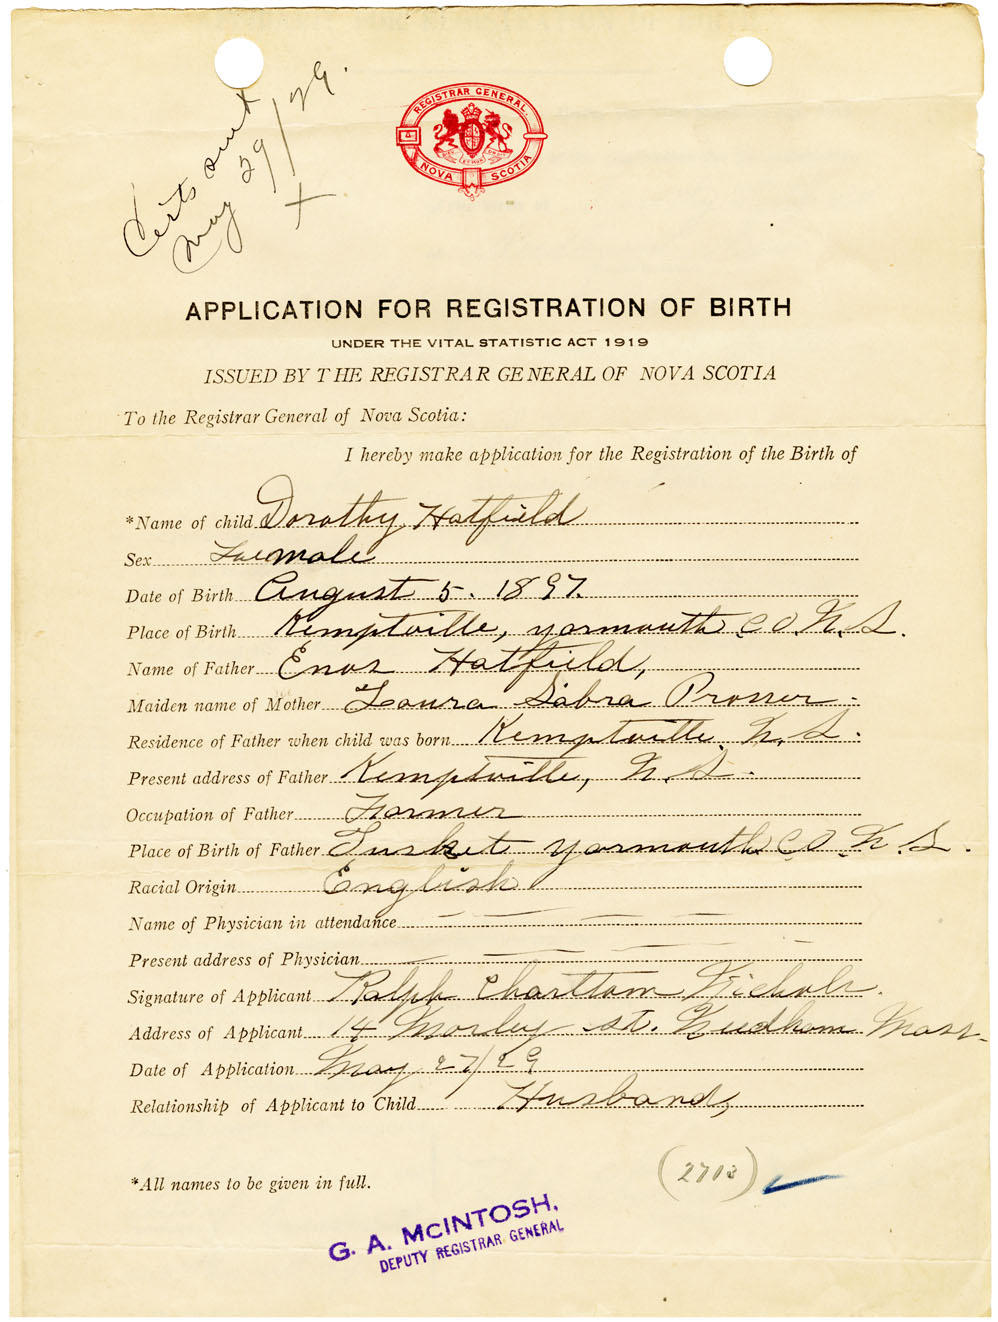 Certs sent
May 29/29.
REGISTRAR GENERAL.
NOVA SCOTIA
APPLICATION FOR REGISTRATION OF BIRTH
UNDER THE VITAL STATISTIC ACT 1919
ISSUED BY THE REGISTRAR GENERAL OF NOVA SCOTIA
To the Registrar General of Nova Scotia:
I hereby make application for the Registration of the Birth of
*Name of child Dorothy Hatfield
Sex Female
Date of Birth August 5. 1897.
Place of Birth Kemptville, Yarmouth CO. N. S.
Name of Father Enos Hatfield,
Maiden name of Mother Laura Sabra Prosser
Residence of Father when child was born Kemptville, N. S.
Present address of Father Kemptville, N. S.
Occupation of Father Farmer
Place of Birth of Father Tusket Yarmouth CO. N. S.
Racial Origin English
Name of Physician in attendance
Present address of Physician
Signature of Applicant Ralph Nichols.
Address of Applicant 14 Morley st. Needham Mass.
Date of Application May 27/29
Relationship of Applicant to Child Husband,
*All names to be given in full.
(2713)
G. A. McINTOSH,
DEPUTY REGISTRAR GENERAL